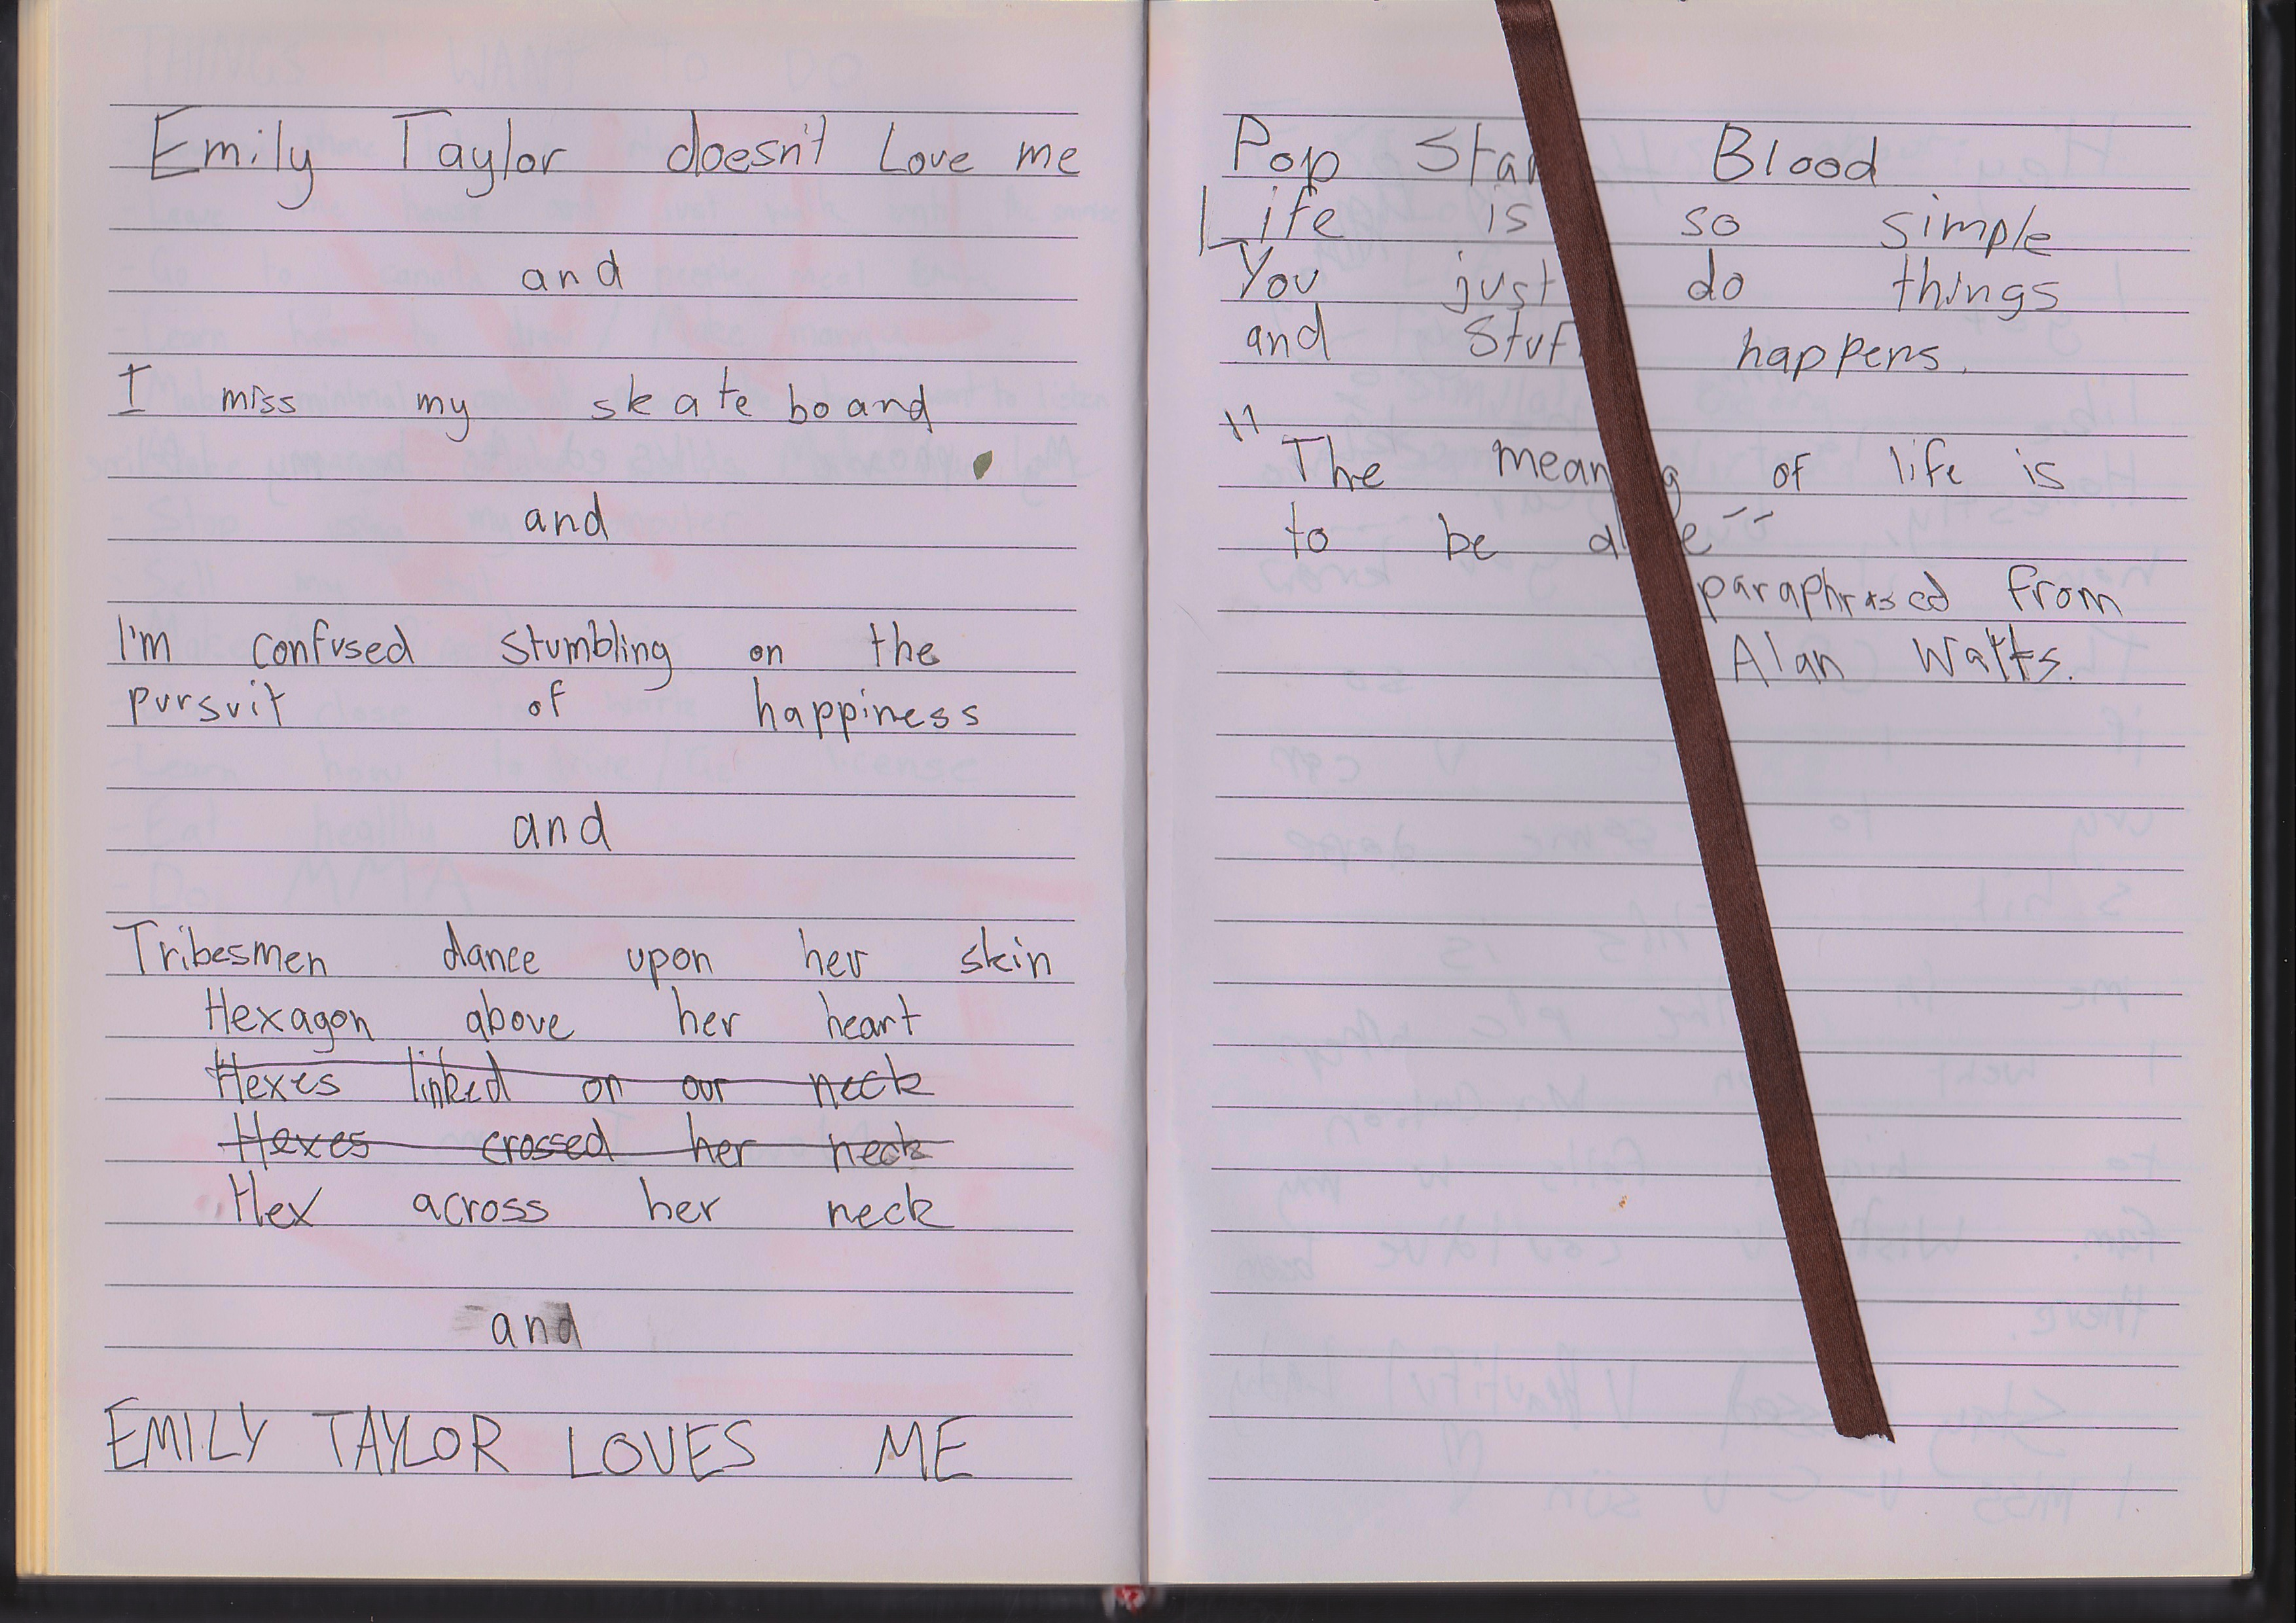 Emily Taylor doesn't Love me
and
I miss my skateboand
and
I'm confused stumbling on the
pursuit of happiness
and
Tribesmen dance upon her skin
Hexagon above her heart
Hexes linked on our neck
Hexes crossed her neck
Hex across her neck
and
EMILY TAYLOR LOVES ME
Pop Star Blood
Life is so simple
You just do things
and Stuff happens.
"The meaning of life is
to be alive"
paraphrased from
Alan Watts.